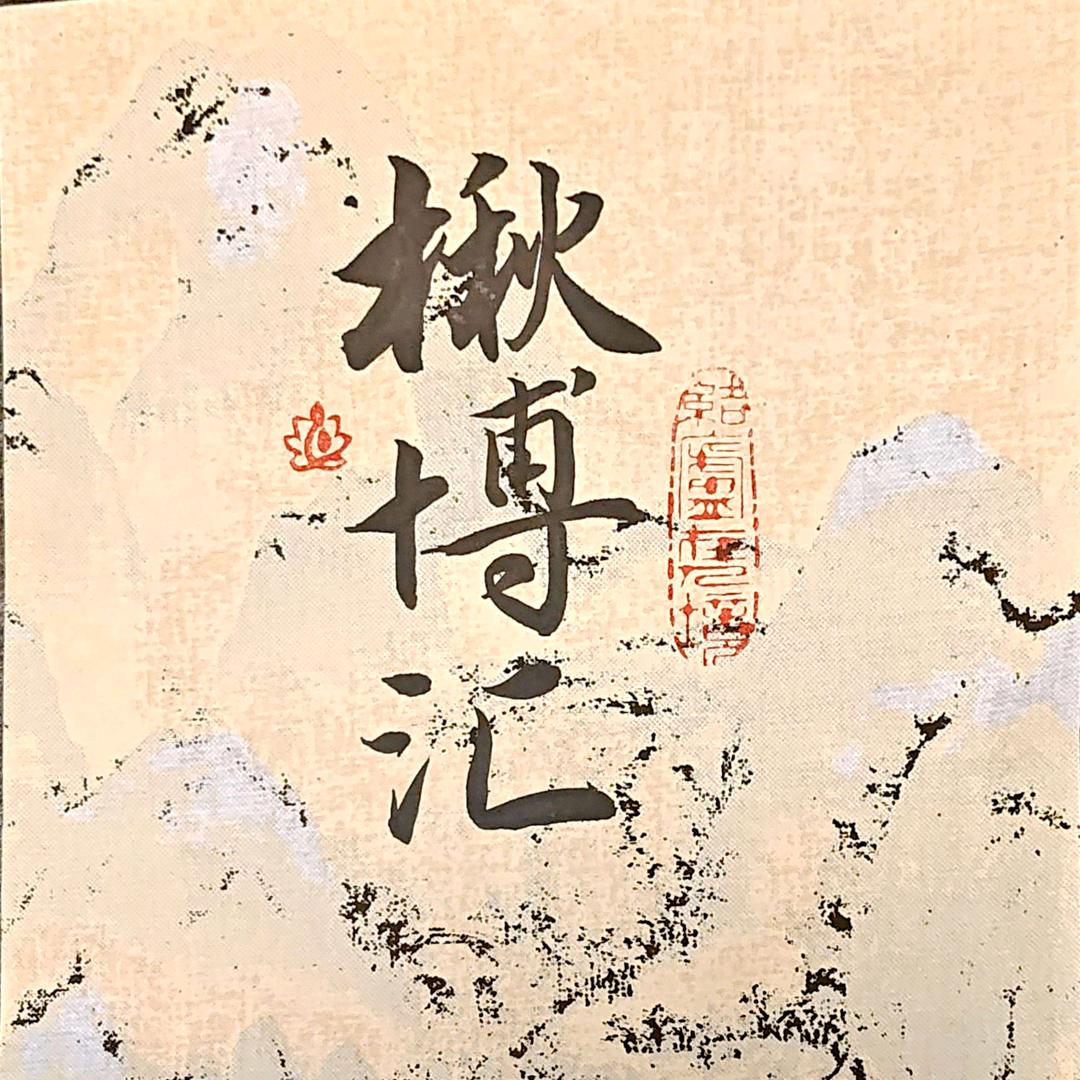 楸
博
汇